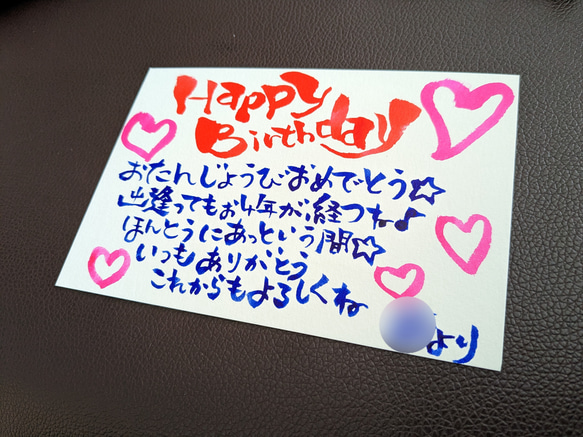 Happy
Birthday
おたんじょうびおめでとう☆
出逢ってもお4年が経つね♪
ほんとうにあっという間☆
いつもありがとう
これからもよろしくね
より